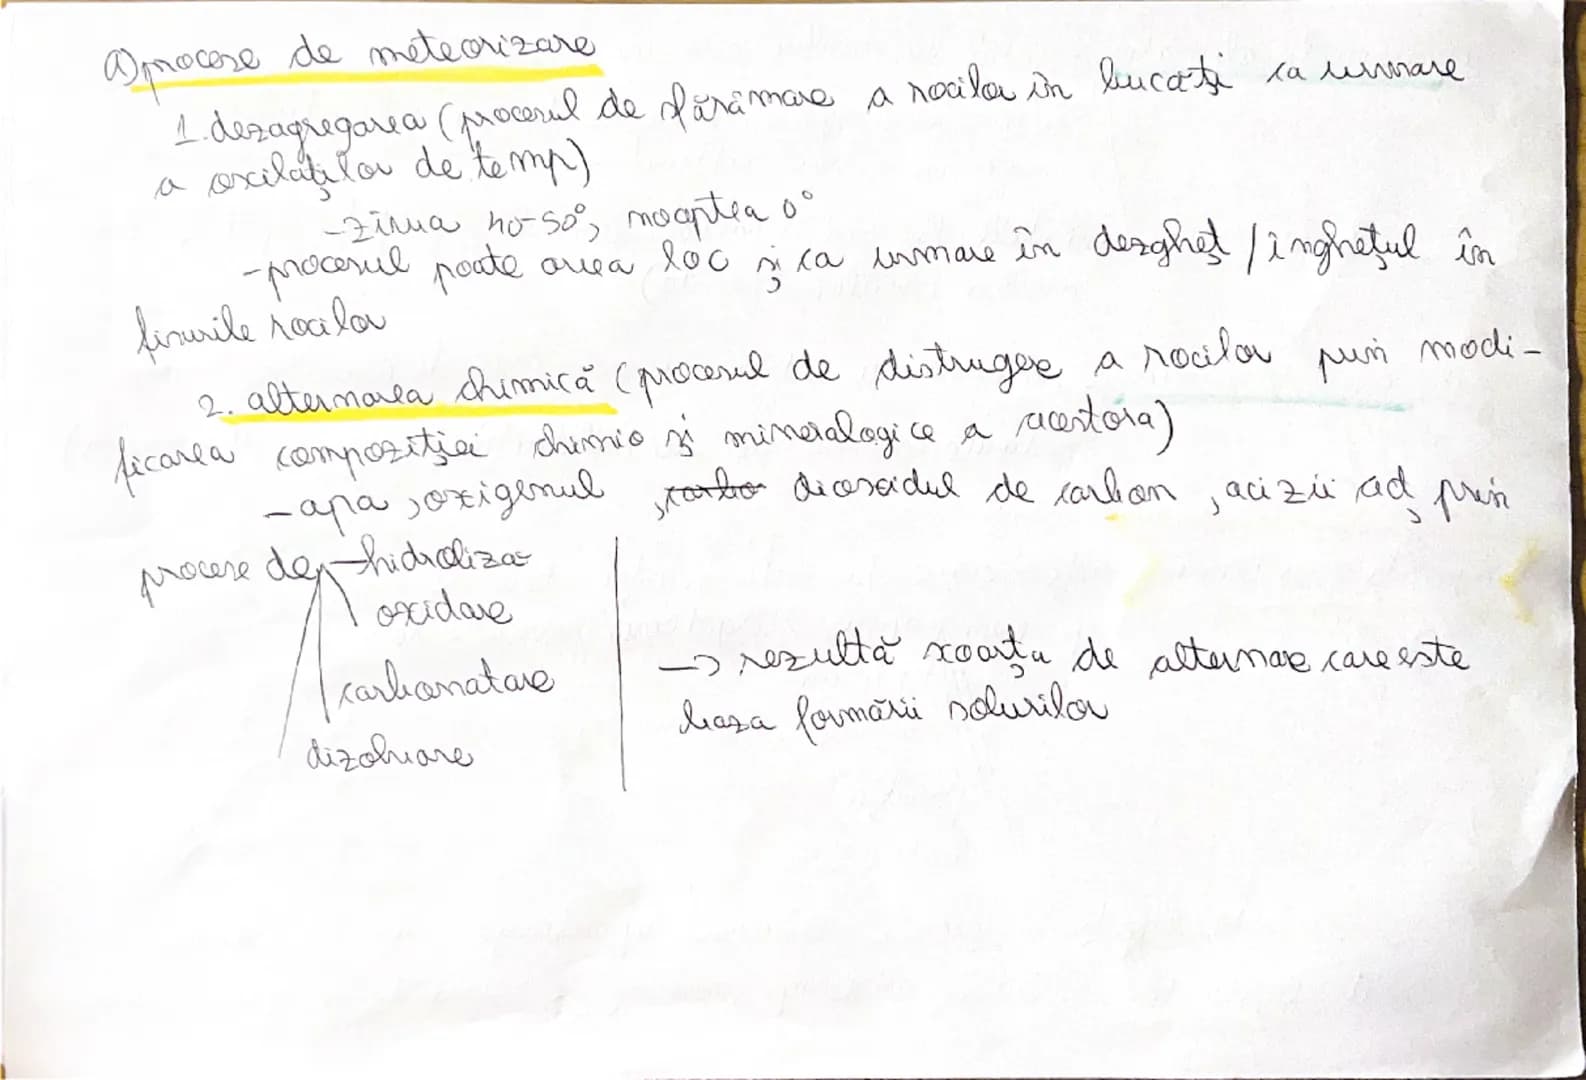 a) procese de meteorizare
1. dezagregarea (procesul de sfărâmare a rocilor în bucăți ca urmare
a oscilațiilor de temp)
-ziua 40-50°, noaptea 0°
-procesul poate avea loc și ca urmare în dezgheț / înghețul în
fisurile rocilor
2. alternarea chimică (procesul de distrugere a rocilor prin modi-
ficarea compoziției chimic și mineralogice a acestora)
- apa, oxigenul, carbo dioxidul de carbon, acizii ad, prin
procese de - hidroliza
oxidare
carbonatare
dizolvare
→ rezultă scoarța de alternare care este
baza formării solurilor